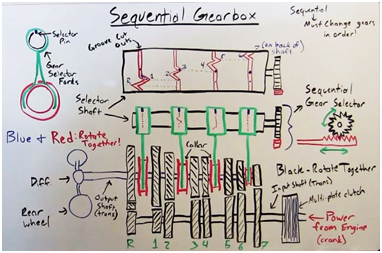 Sequential Gearbox
Sequential
Must Change gears
in order!
Selector
Pin
Gear
Selector
Forks
Groove cut
outs
(on back of
shaft)
R
1
2
3
4
Selector
Shaft
Sequential
Gear Selector
Blue + Red: Rotate
Together!
Collar
Black - Rotate Together
Input Shaft (Trans)
Multi-plate clutch
Diff.
Output
Shaft
(trans)
Rear
Wheel
Power
from Engine
(crank)
R 1 2 3 4 5 6 7